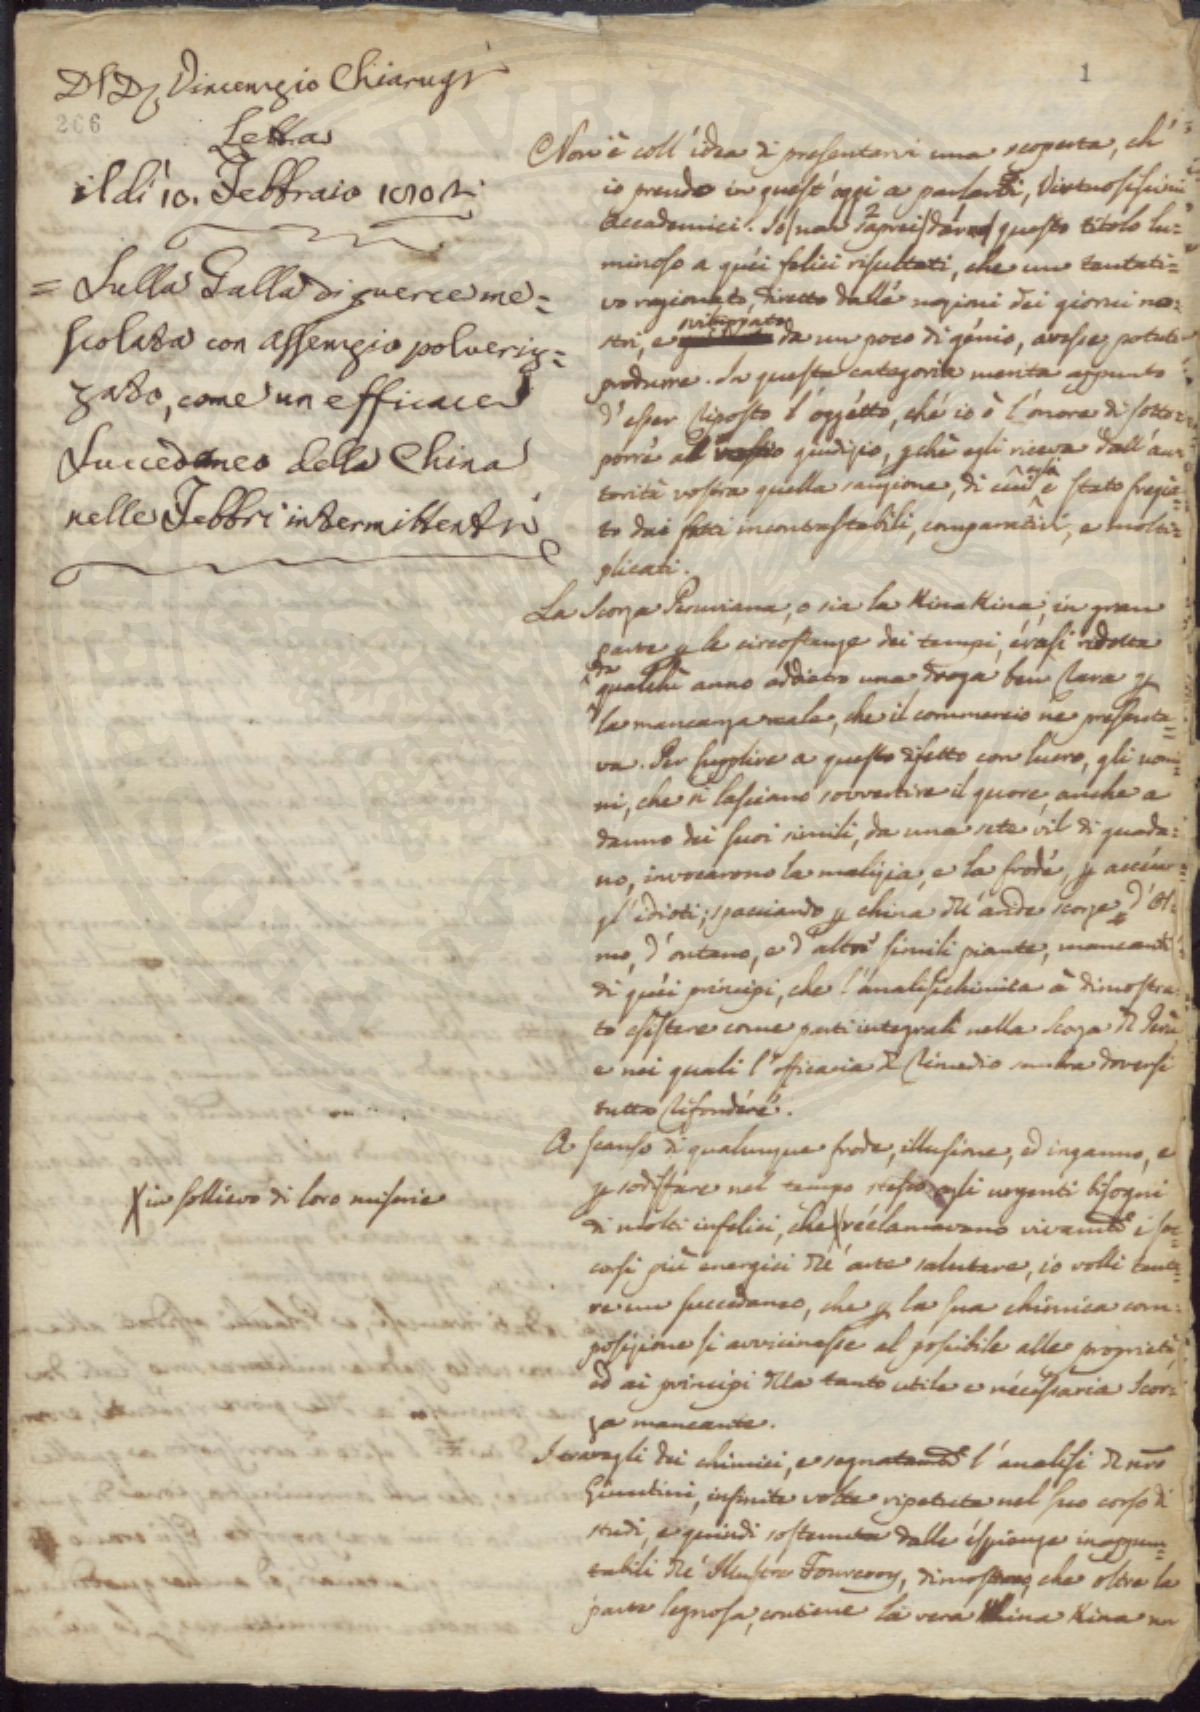 Del D.r Vincenzio Chiarugi
266
Letta
il dì 10. Febbraio
= Sulla Galla di querce me=
scolata con assenzio polveriz=
zato, come un efficace
Succedaneo della China
nelle Febbri intermittenti
1
Non è coll'idea di presentarvi una scoperta, ch'
io prendo in quest'oggi a parlarvi, Virtuosissimi
Accademici. Io non saprei dare questo titolo lu=
minoso a quei felici risultati, che un tentati=
vo ragionato, diretto dalle nozioni dei giorni no=
stri, e sviluppato da un poco di génio, avesse potuto
produrre. In questa categoria merita appunto
d'esser riposto l'oggetto, ché io ò l'onore di sotto=
porre al vostro giudizio, pchè egli riceva dall'au=
torità vostra quella sanzione, di cui già è stato fregia=
to dai fatti incontrastabili, comparativi, e molti=
plicati.
La Scorza Peruviana, o sia la Kina Kina, in gran
parte p le circostanze dei tempi, érasi ridotta
da qualche anno addietro una droga ben rara p
la mancanza reale, che il commercio ne presenta=
va. Per supplire a questo difetto con lucro, gli uomi=
ni, che si lasciano sovvertire il quore, anche a
danno dei suoi simili, da una sete vil di guada=
gno, invocarono la malizia, e la frode, p
gl'idioti; spacciando p china dell'ande scorze d'Ol=
mo, d'ontano, e d'altre simili piante, mancanti
di quéi principj, che l'analisi chimica à dimostra=
to esistere come parti integrali nella Scorza del Perù
e nei quali l'efficacia del rimedio sembra doversi
tutta rifondére.
A scanso di qualunque frode, illusione, ed inganno, e
p sodisfare nel tempo stesso agli urgenti bisogni
di molti infelici, che X réclamavano vivamte i soc=
corsi più energici dell'arte salutare, io volli tenta=
re un succedaneo, che p la sua chimica com=
posizione si avvicinasse al possibile alle proprietà,
ed ai principj della tanto utile e necéssaria Scor=
za mancante.
X in sollievo di loro miserie
I travagli dei chimici, e segnatamte l'analisi del nro
Giuntini, infinite volte ripetuta nel suo corso di
studi, e quindi sostenuta dalle espienze inappun=
tabili dell'Illustre Fourcroy, dimostrano, che oltre la
parte legnosa, contiene la vera Kina Kina un